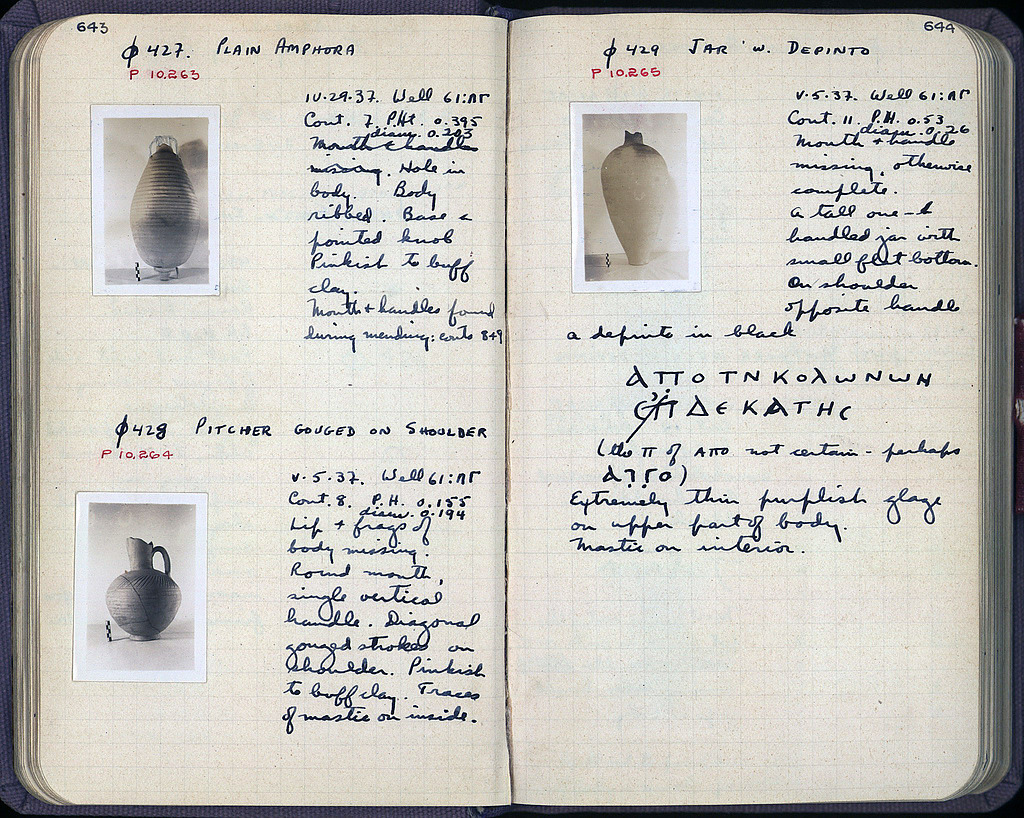 643
ϕ 427. PLAIN AMPHORA
P 10,263
IV·29·37. Well 61:ΛΓ
Cont. 7. P.Ht. 0.395
diam. 0.203
Mouth & handles
missing. Hole in
body. Body
ribbed. Base a
pointed knob
Pinkish to buff
clay.
Mouth + handles found
during mending: conts 8+9
ϕ 428 PITCHER GOUGED ON SHOULDER
P 10,264
V·5·37. Well 61:ΛΓ
Cont. 8. P.H. 0.155
diam. 0.194
Lip + frags of
body missing.
Round mouth,
single vertical
handle. Diagonal
gouged strokes on
shoulder. Pinkish
to buff clay. Traces
of mastic on inside.
644
ϕ 429 JAR W. DEPINTO
P 10,265
V·5·37. Well 61:ΛΓ
Cont. 11. P.H. 0.53
diam. 0.26
Mouth + handle
missing, otherwise
complete.
A tall one-
handled jar with
small flat bottom.
On shoulder
opposite handle
a depinto in black
ΑΠΟ ΤΝ ΚΟλωΝωΗ
ΔΕΚΑΤΗC
(the π of ΑΠΟ not certain - perhaps
Extremely thin purplish glaze
on upper part of body.
Mastic on interior.